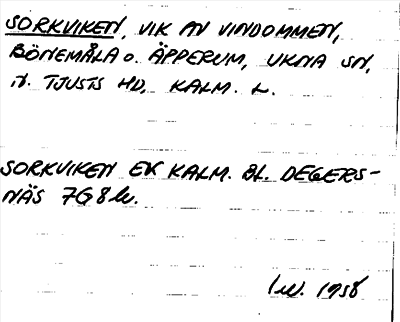 SORKVIKEN, VIK AV VINDOMMEN,
BÖNEMÅLA o. ÄPPERUM, UKNA SN,
N. TJUSTS HD, KALM. L.
SORKVIKEN EK KALM. BL. DEGERS-
NÄS 7G8
1958